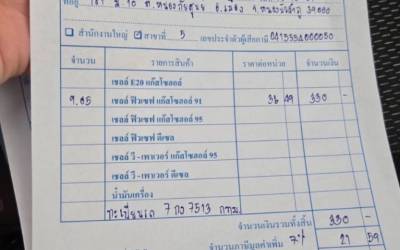 ที่อยู่ 181 ม.10 ต.หนองภัยศูนย์ อ.เมือง จ.หนองบัวลำภู 39000
สำนักงานใหญ่ ✓ สาขาที่ 5 เลขประจำตัวผู้เสียภาษี 0415554000050
จำนวน รายการสินค้า ราคาต่อหน่วย จำนวนเงิน
เชลล์ E20 แก๊สโซฮอล์
9.05 เชลล์ ฟิวเซฟ แก๊สโซฮอล์ 91 36 49 330 -
เชลล์ ฟิวเซฟ แก๊สโซฮอล์ 95
เชลล์ ฟิวเซฟ ดีเซล
เชลล์ วี-เพาเวอร์ แก๊สโซฮอล์ 95
เชลล์ วี-เพาเวอร์ ดีเซล
น้ำมันเครื่อง
ทะเบียนรถ 7 กง 7513 กทม
จำนวนเงินรวมทั้งสิ้น 330 -
จำนวนภาษีมูลค่าเพิ่ม 7% 21 59